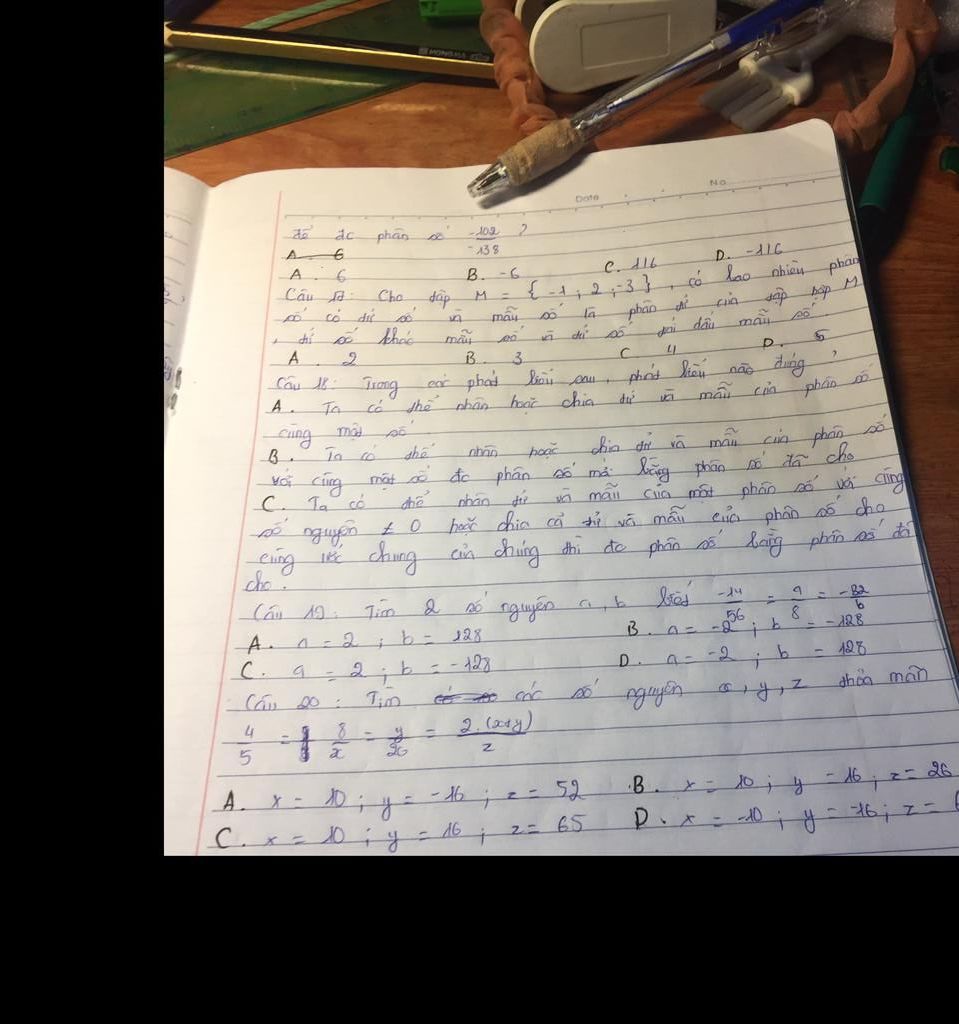 MONGMA
Date
No
để đc phân số -102/-138 ?
A. 6
A. 6 B. -6 C. 116 D. -116
Câu 17: Cho tập M = { -1 ; 2 ; -3 }, có bao nhiêu phân
số có tử số và mẫu số là phần tử của tập hợp M
, tử số khác mẫu số và tử số trái dấu mẫu số.
A. 2 B. 3 C 4 D. 5
Câu 18: Trong các phát biểu sau, phát biểu nào đúng ?
A. Ta có thể nhân hoặc chia tử và mẫu của phân số
cùng một số
B. Ta có thể nhân hoặc chia tử và mẫu của phân số
với cùng một số đc phân số mới bằng phân số đã cho
C. Ta có thể nhân tử và mẫu của một phân số với cùng
số nguyên ≠ 0 hoặc chia cả tử và mẫu của phân số cho
cùng ước chung của chúng thì đc phân số bằng phân số đã
cho.
Câu 19: Tìm 2 số nguyên a, b biết -14/56 = a/8 = -32/b
A. a = 2 ; b = 128 B. a = -2 ; b = -128
C. a = 2 ; b = -128 D. a = -2 ; b = 128
Câu 20: Tìm các số nguyên x, y, z thỏa mãn
4/5 = 8/x = y/20 = 2.(x+y)/z
A. x = 10 ; y = -16 ; z = 52 B. x = 10 ; y = 16 ; z = 26
C. x = 10 ; y = 16 ; z = 65 D. x = -10 ; y = -16 ; z =